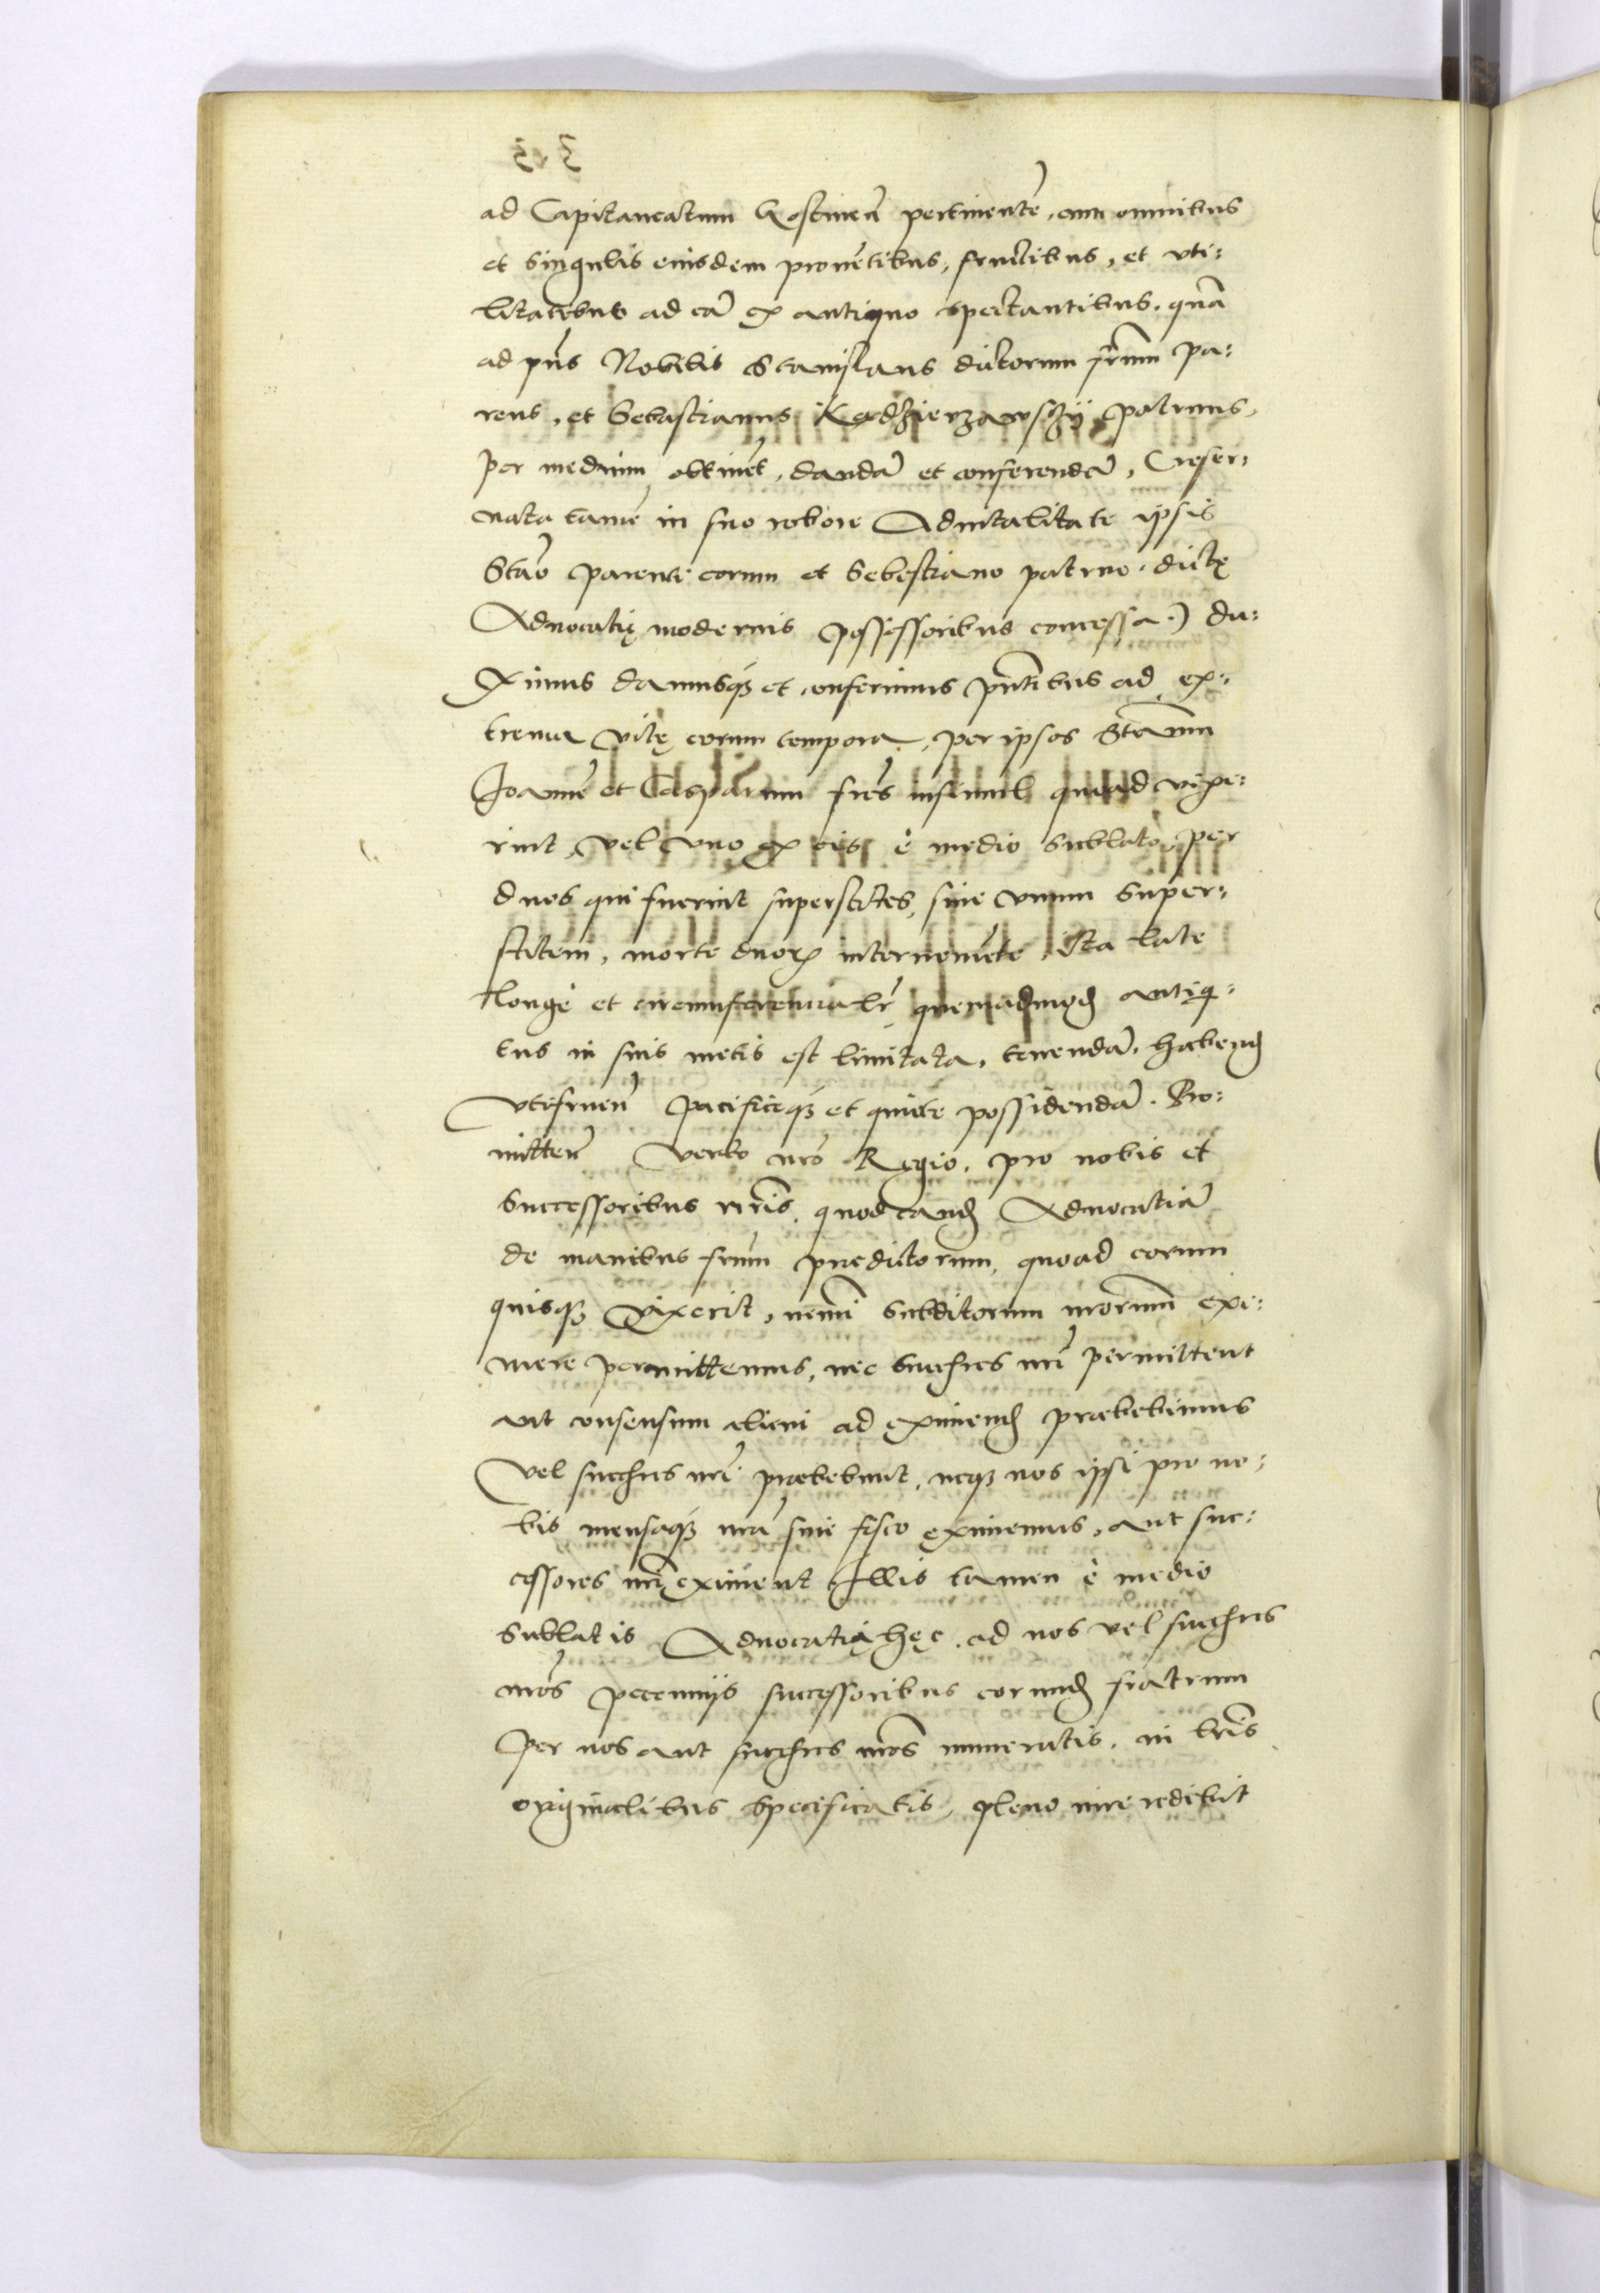 ad Capitaneatum Gostineñ pertinentẽ, cum omnibus
et singulis eiusdem prouẽtibus, fructibus, et vti:
litatibus ad eã ex antiquo spectantibus. quã
ad pñs Nobilis Stanislaus dictorum frum̃ pa:
rens, et Sebastianus Kędzierzawsky patruus,
per medium obtinẽt, dandã et conferendã, (reser:
uata tamẽ in suo robore Aduitalitate ipsis
Stão parenti eorum et Sebestiano patruo, dictę
Aduocatię modernis possessoribus concessa.) du:
ximus damusqȝ et conferimus pñtibus ad ex:
trema vitę eorum tempora, per ipsos Stañum
Joannẽ et Casparum fres̃ insimul quoad vixe:
rint, vel vno ex eis è medio sublato, per
duos qui fuerint superstites, siue vnum super:
stitem, morte duoꝝ interueniẽte, ita late
longè et circumferentialr̃ quemadmod̃ antiq:
tus in suis metis est limitata, tenendã, habend̃
Vtifrueñ pacificeqȝ et quiete possidendã. Pro:
mitteñ verbo nrõ Regio, pro nobis et
successoribus nr̃is, quod eand̃ Aduocatiã
de manibus frum̃ praedictorum, quoad eorum
quisqȝ vixerit, nemini subditorum nrorum̃ exi:
mere permittemus, nec succřes nri̇̃ permittent
aut consensum alicui ad eximend̃ praebebimus
Vel succřes nrĩ praebebunt, neqȝ nos ipsi pro no:
bis mensaqȝ nrã siue fisco eximemus, aut suc:
cessores nrĩ eximent. Illis tamen è medio
sublatis Aduocatia hęc, ad nos vel succřes
nrõs pecunijs successoribus eorund̃ fratrum
per nos aut succřes nrõs numeratis, in lrĩs
originalibus specificatis, pleno iure redibit